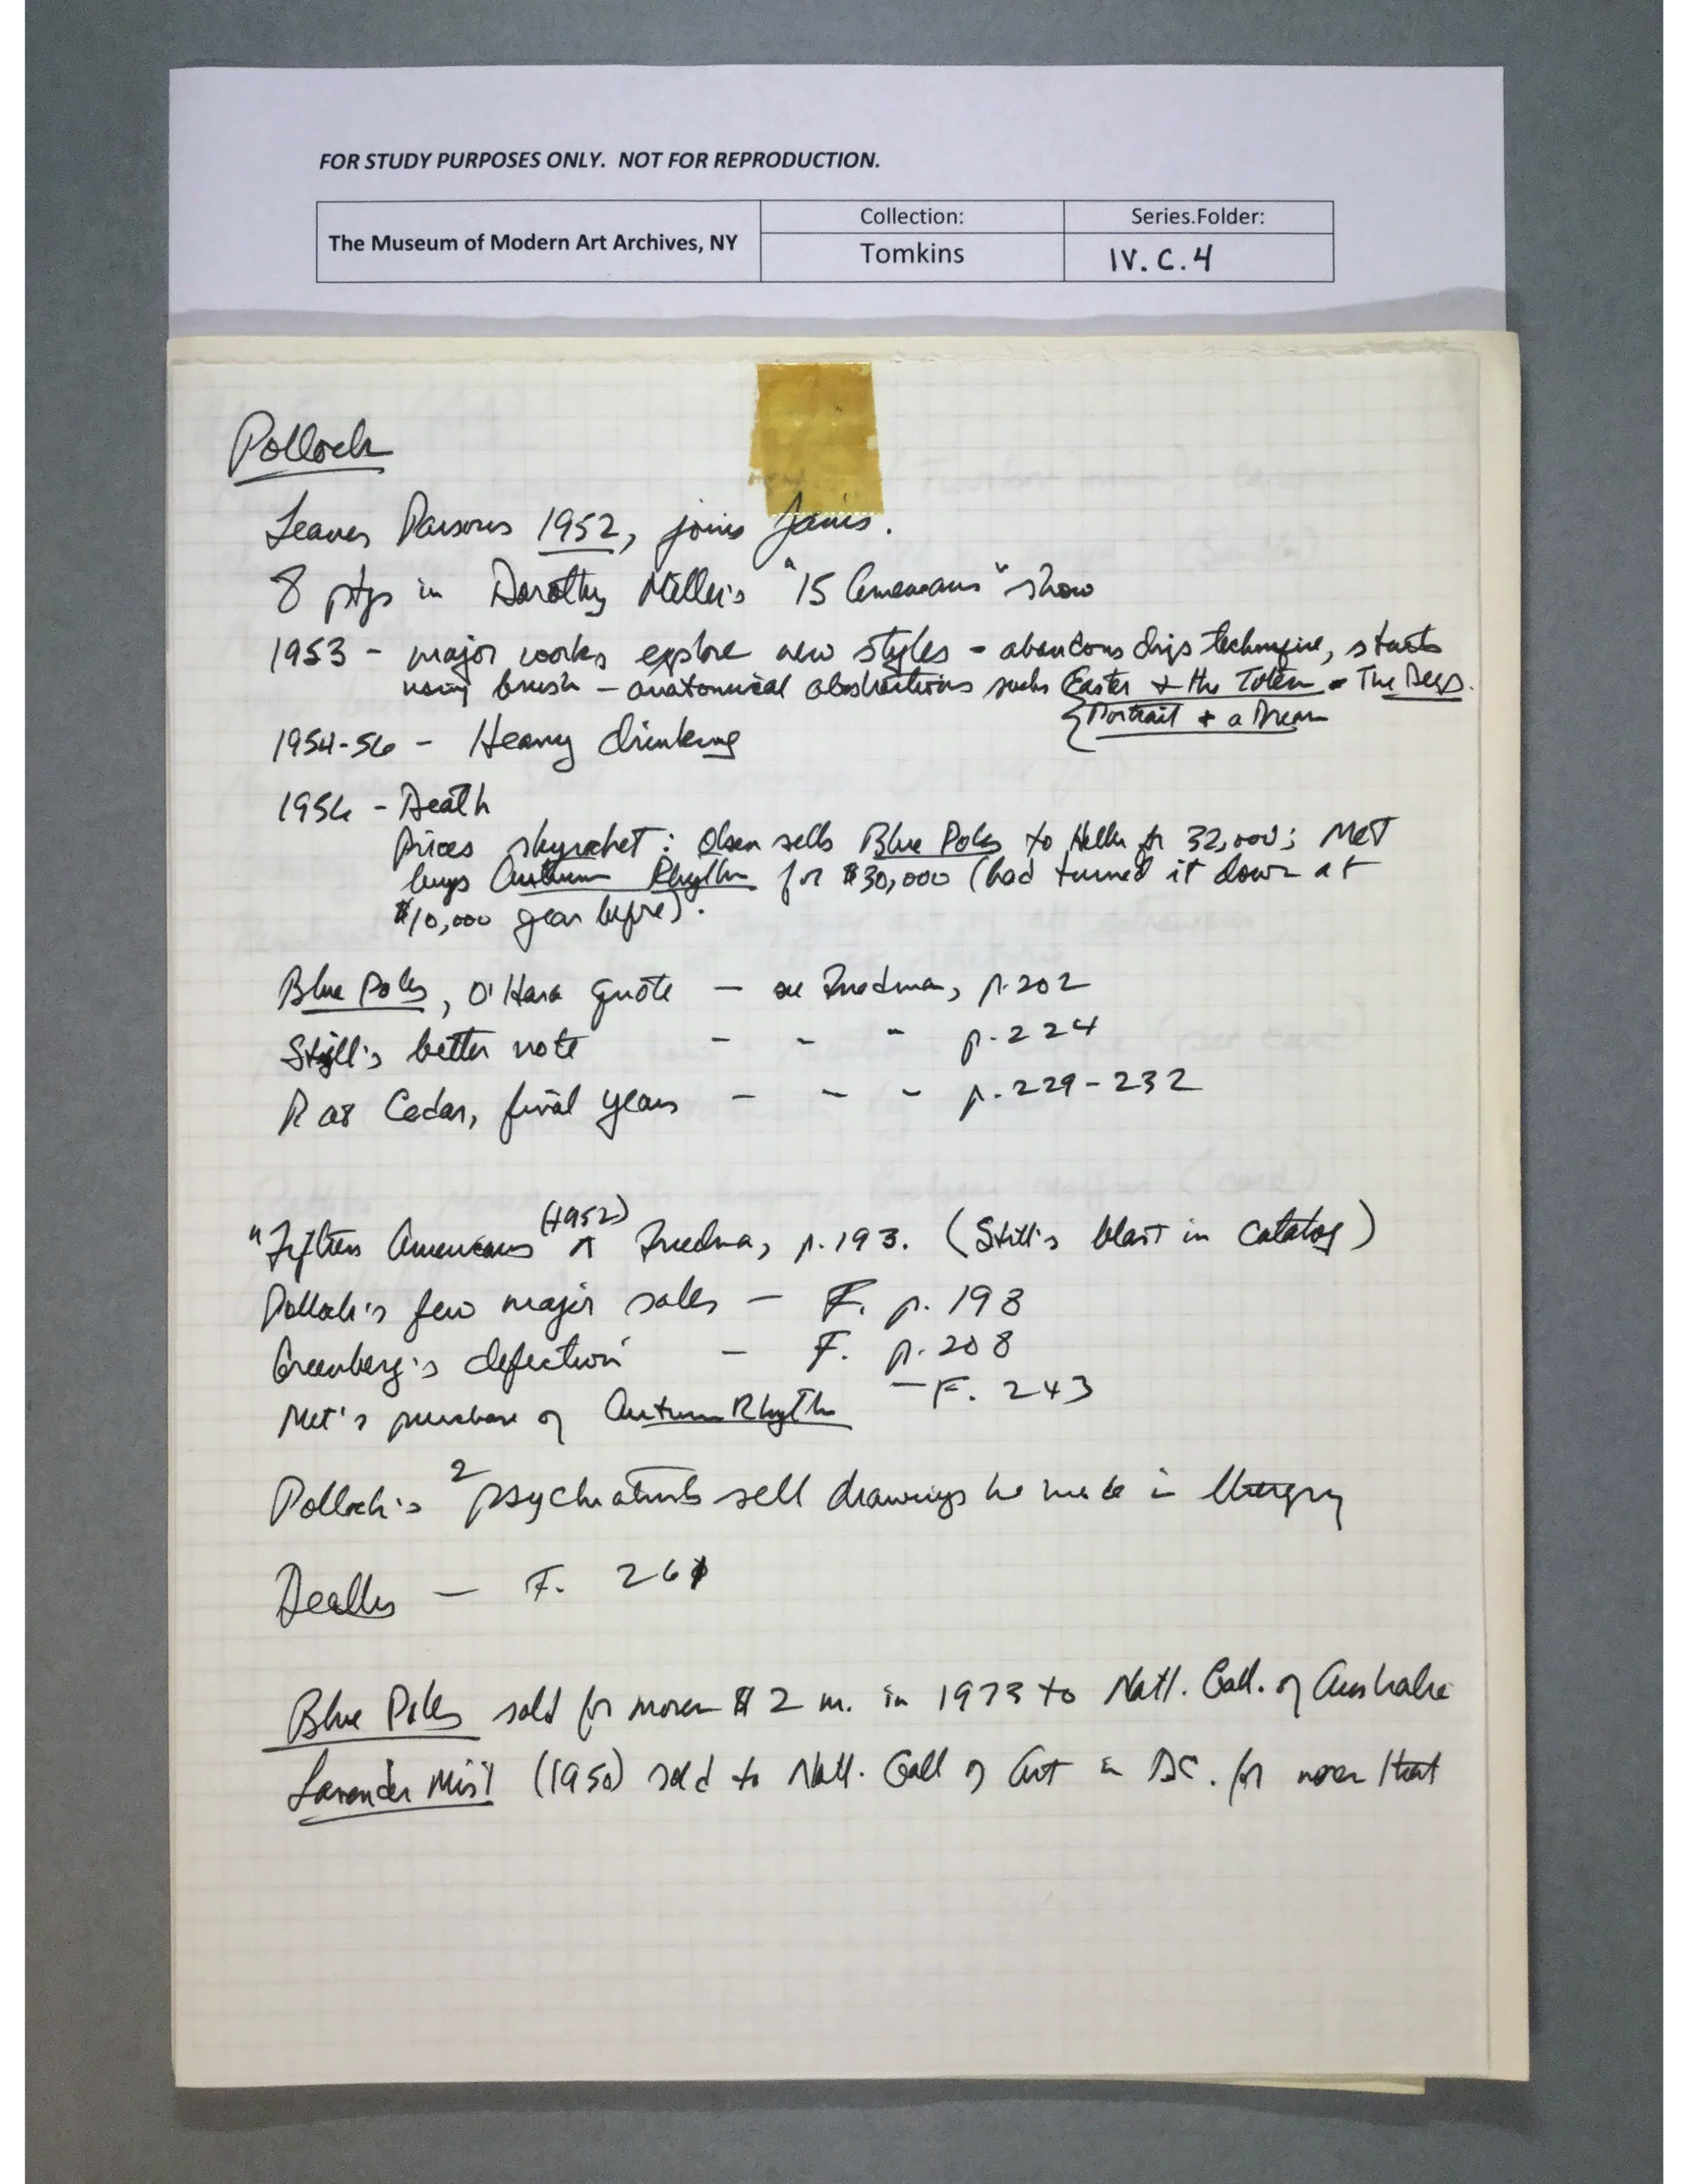 FOR STUDY PURPOSES ONLY. NOT FOR REPRODUCTION.
The Museum of Modern Art Archives, NY
Collection:
Series.Folder:
Tomkins
IV.C.4
Pollock
Leaves Parsons 1952, joins Janis.
8 ptgs in Dorothy Miller's "15 Americans" show
1953 - major works explore new styles - abandons drip technique, starts
using brush - anatomical abstractions such Easter + the Totem The Deep.
{Portrait + a Dream
1954-56 - Heavy drinking
1956 - Death
Prices skyrocket: Olsen sells Blue Poles to Heller for 32,000; Met
buys Autumn Rhythm for $30,000 (had turned it down at
$10,000 year before).
Blue Poles, O'Hara quote - see Friedman, p.202
Still's better note - - " p.224
P at Cedar, final years - - - p.229-232
"Fifteen Americans (1952) Friedman, p.193. (Still's blast in catalog)
Pollock's few major sales - F. p. 198
Greenberg's defection - F. p.208
Met's purchase of Autumn Rhythm - F. 243
Pollock's 2 psychiatrists sell drawings he made in therapy
- F. 261
Blue Poles sold for more $2 m. in 1973 to Natl. Gall. of Australia
Lavender Mist (1950) sold to Natl. Gall of Art in DC. for more that